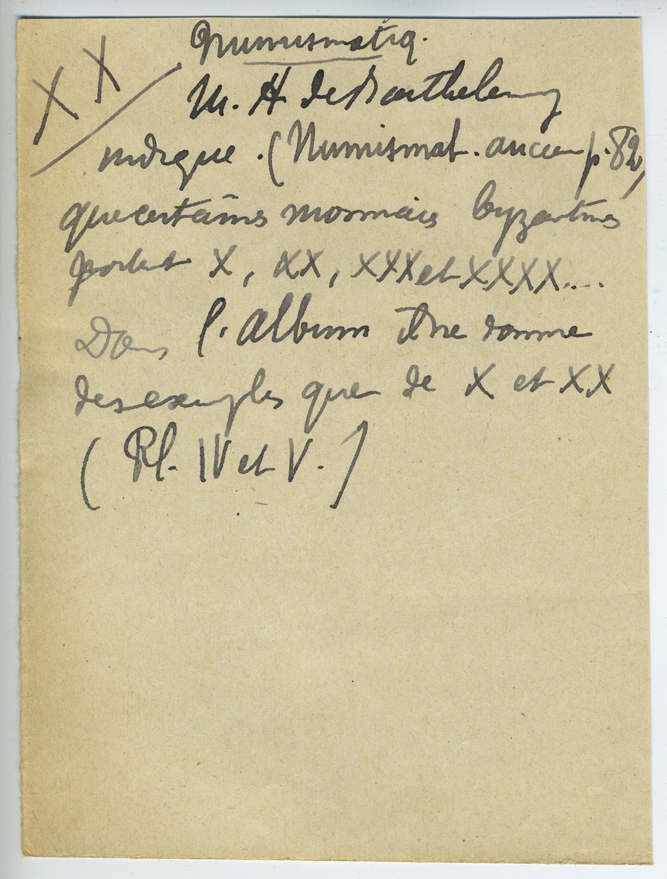 XX
Numismatiq.
M. A de Barthelemy
indique. (Numismat. ancien p. 82,
que certains monnaies byzantines
portent X, XX, XXX et XXXX....
Dans l'album il ne donne
des exemples que de X et XX
(Pl. IV et V.)